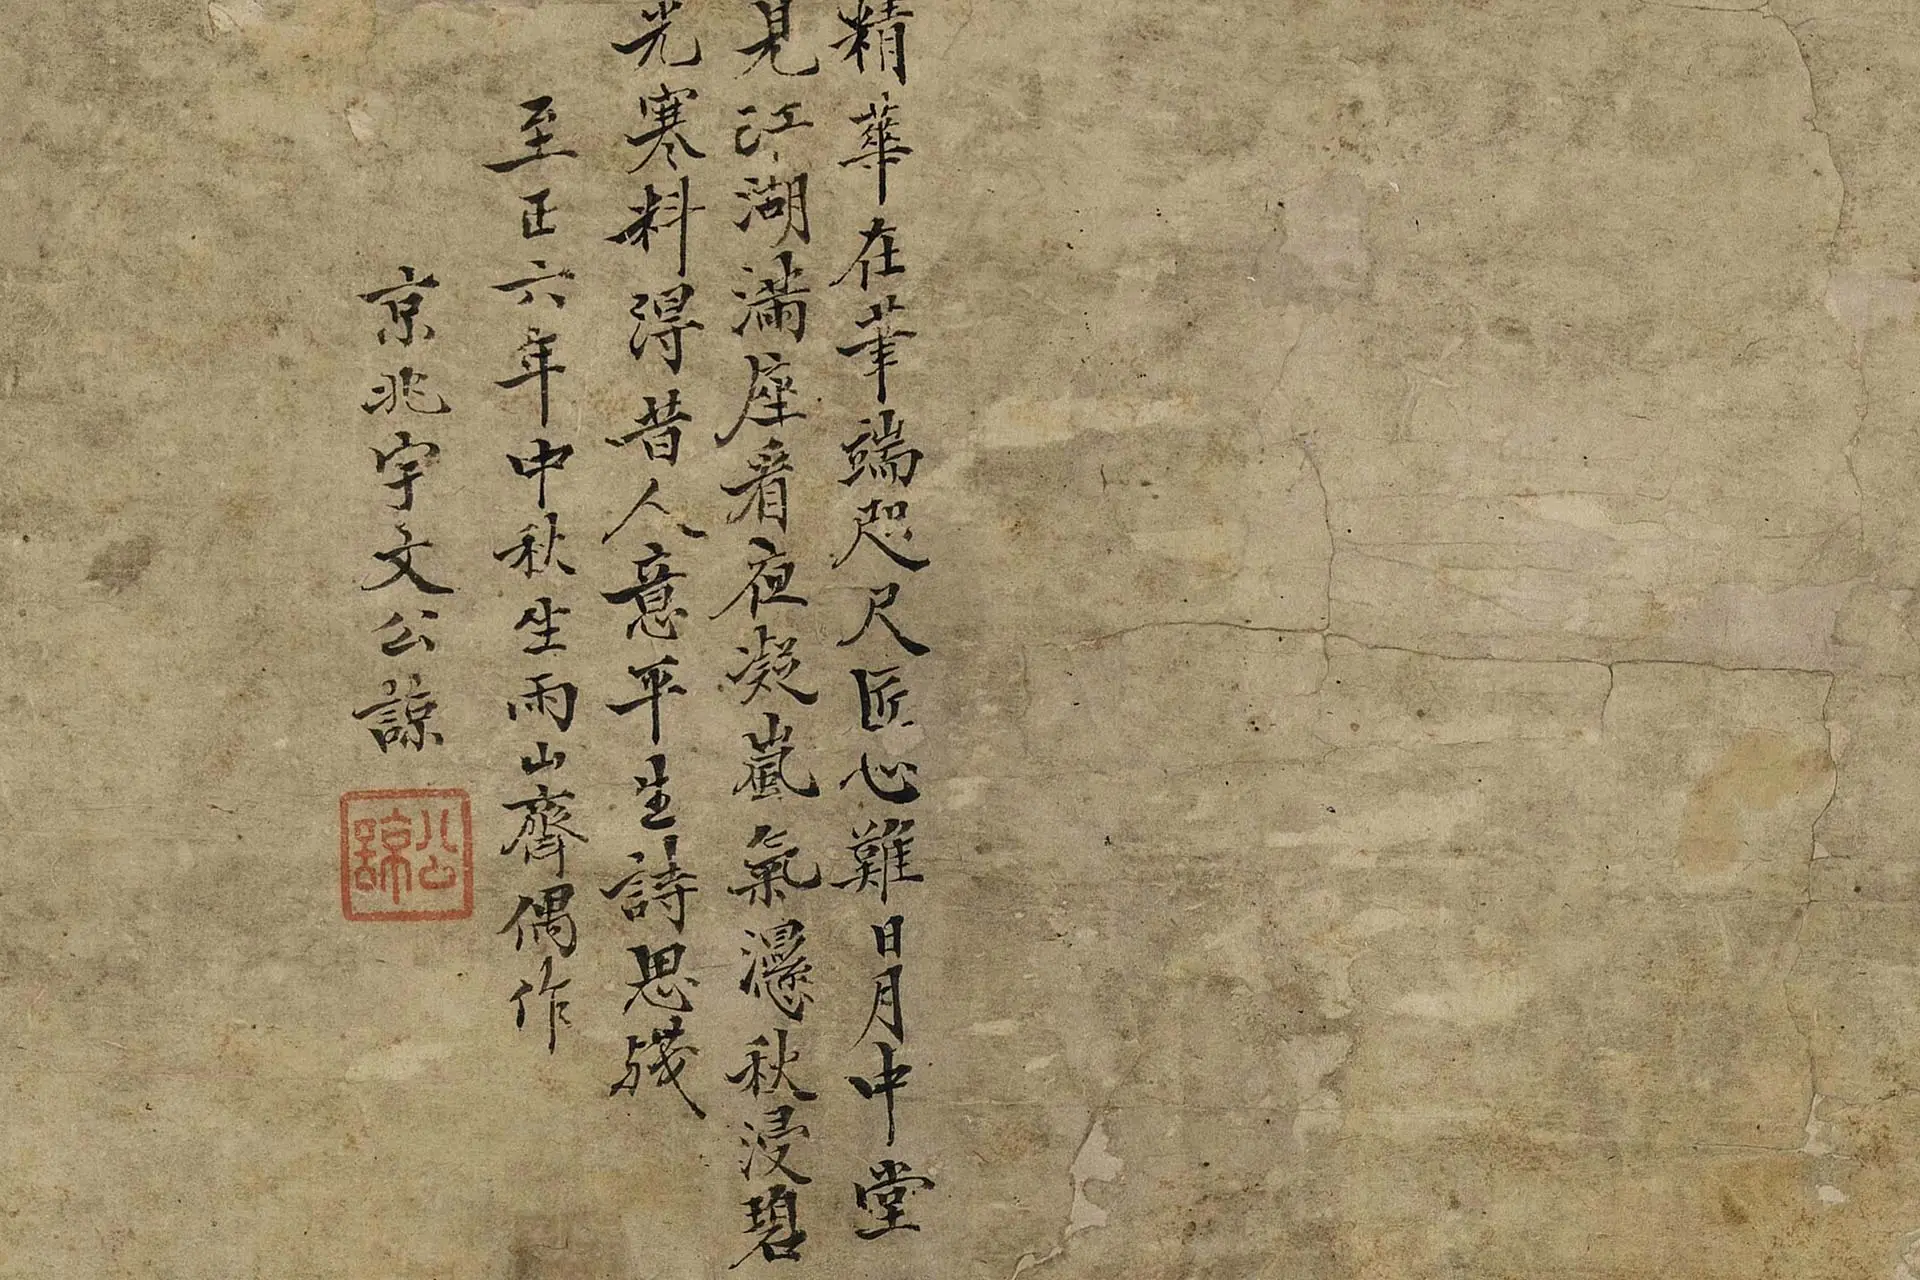 精華在筆端咫尺匠心難日月中堂
見江湖滿座看夜凝嵐氣濕秋浸碧
光寒料得昔人意平生詩思殘
至正六年中秋生雨山齊偶作
京兆宇文公諒
公諒